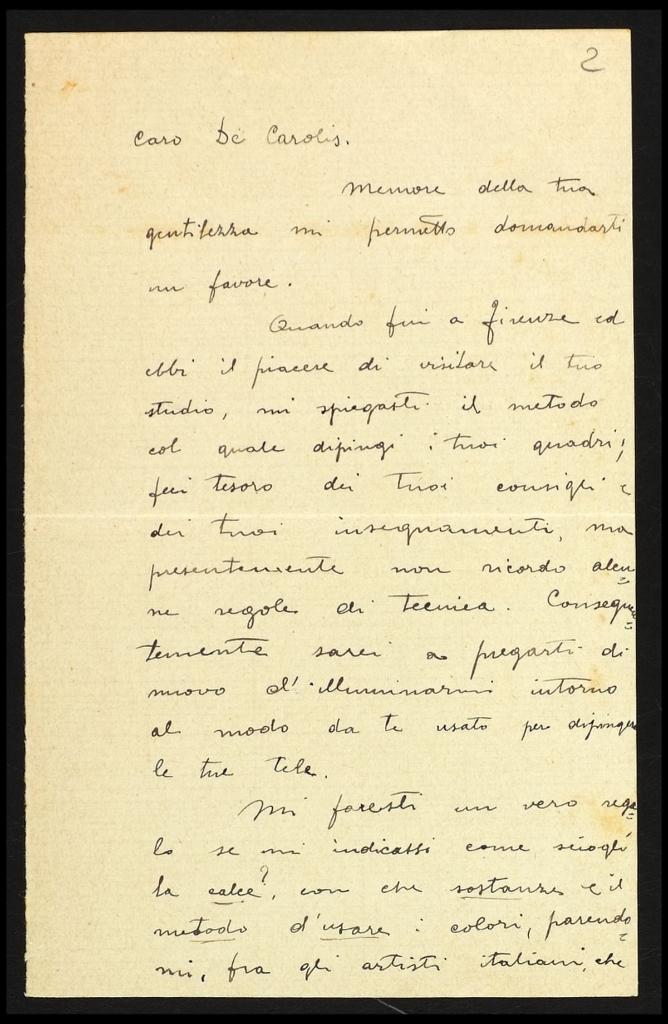 2
Caro De Carolis.
Memore della tua
gentilezza mi permetto domandarti
un favore.
Quando fui a Firenze ed
ebbi il piacere di visitare il tuo
studio, mi spiegasti il metodo
col quale dipingi i tuoi quadri;
feci tesoro dei tuoi consigli e
dei tuoi insegnamenti, ma
presentemente non ricordo alcu=
ne regole di tecnica. Conseguen=
temente sarei a pregarti di
nuovo d'illuminarmi intorno
al modo da te usato per dipingere
le tue tele.
Mi faresti un vero rega=
lo se mi indicassi come sciogli
la calce?, con che sostanze e il
metodo d'usare i colori, parendo=
mi, fra gli artisti italiani, che